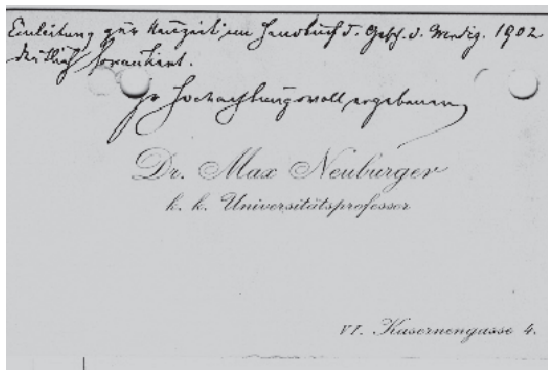 Einleitung zur Neuzeit im Handbuch d. Gesch. d. Medizin. 1902
deutlich
Ihr hochachtungsvoll ergebener
Dr. Max Neuburger
k. k. Universitätsprofessor
VI. Kasernengasse 4.